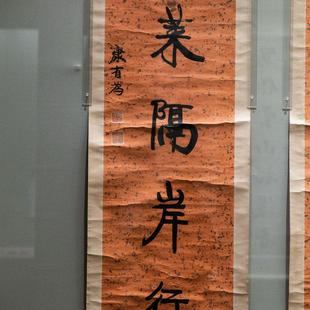 葉隔岸行
康有為